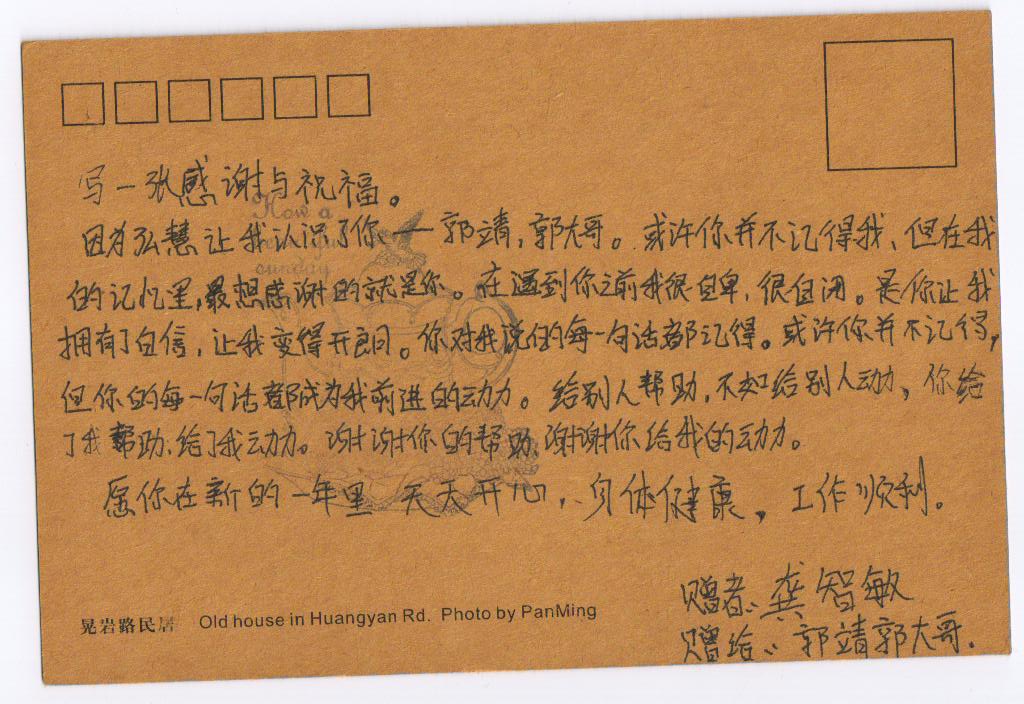 写一张感谢与祝福。
How a
beautiful
sunday
因为弘慧让我认识了你——郭靖,郭大哥。或许你并不记得我、但在我
的记忆里,最想感谢的就是你。在遇到你之前我很自卑,很自闭。是你让我
拥有了自信,让我变得开朗。你对我说的每一句话都记得。或许你并不记得,
但你的每一句话都成为我前进的动力。给别人帮助,不如给别人动力,你给
了我帮助、给了我动力。谢谢你的帮助,谢谢你给我的动力。
愿你在新的一年里天天开心,身体健康,工作顺利。
赠者:龚智敏
赠给:郭靖郭大哥.
晃岩路民居 Old house in Huangyan Rd. Photo by PanMing